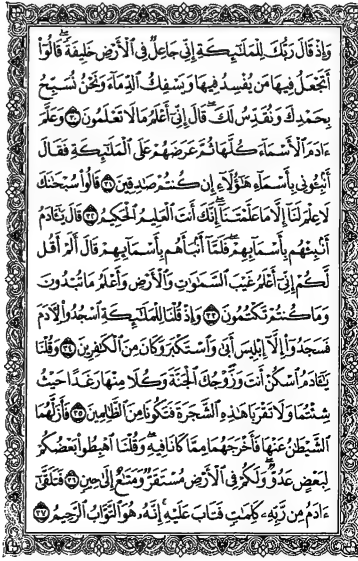 وَإِذْ قَالَ رَبُّكَ لِلْمَلَـٰٓئِكَةِ إِنِّي جَاعِلٌ فِي ٱلْأَرْضِ خَلِيفَةً ۖ قَالُوٓا۟
أَتَجْعَلُ فِيهَا مَن يُفْسِدُ فِيهَا وَيَسْفِكُ ٱلدِّمَآءَ وَنَحْنُ نُسَبِّحُ
بِحَمْدِكَ وَنُقَدِّسُ لَكَ ۖ قَالَ إِنِّيٓ أَعْلَمُ مَا لَا تَعْلَمُونَ ٣٠ وَعَلَّمَ
ءَادَمَ ٱلْأَسْمَآءَ كُلَّهَا ثُمَّ عَرَضَهُمْ عَلَى ٱلْمَلَـٰٓئِكَةِ فَقَالَ
أَنۢبِـُٔونِي بِأَسْمَآءِ هَـٰٓؤُلَآءِ إِن كُنتُمْ صَـٰدِقِينَ ٣١ قَالُوا۟ سُبْحَـٰنَكَ
لَا عِلْمَ لَنَآ إِلَّا مَا عَلَّمْتَنَآ ۖ إِنَّكَ أَنتَ ٱلْعَلِيمُ ٱلْحَكِيمُ ٣٢ قَالَ يَـٰٓـَٔادَمُ
أَنۢبِئْهُم بِأَسْمَآئِهِمْ ۖ فَلَمَّآ أَنۢبَأَهُم بِأَسْمَآئِهِمْ قَالَ أَلَمْ أَقُل
لَّكُمْ إِنِّيٓ أَعْلَمُ غَيْبَ ٱلسَّمَـٰوَٰتِ وَٱلْأَرْضِ وَأَعْلَمُ مَا تُبْدُونَ
وَمَا كُنتُمْ تَكْتُمُونَ ٣٣ وَإِذْ قُلْنَا لِلْمَلَـٰٓئِكَةِ ٱسْجُدُوا۟ لِـَٔادَمَ
فَسَجَدُوٓا۟ إِلَّآ إِبْلِيسَ أَبَىٰ وَٱسْتَكْبَرَ وَكَانَ مِنَ ٱلْكَـٰفِرِينَ ٣٤ وَقُلْنَا
يَـٰٓـَٔادَمُ ٱسْكُنْ أَنتَ وَزَوْجُكَ ٱلْجَنَّةَ وَكُلَا مِنْهَا رَغَدًا حَيْثُ
شِئْتُمَا وَلَا تَقْرَبَا هَـٰذِهِ ٱلشَّجَرَةَ فَتَكُونَا مِنَ ٱلظَّـٰلِمِينَ ٣٥ فَأَزَلَّهُمَا
ٱلشَّيْطَـٰنُ عَنْهَا فَأَخْرَجَهُمَا مِمَّا كَانَا فِيهِ ۖ وَقُلْنَا ٱهْبِطُوا۟ بَعْضُكُمْ
لِبَعْضٍ عَدُوٌّ ۖ وَلَكُمْ فِي ٱلْأَرْضِ مُسْتَقَرٌّ وَمَتَـٰعٌ إِلَىٰ حِينٍ ٣٦ فَتَلَقَّىٰٓ
ءَادَمُ مِن رَّبِّهِۦ كَلِمَـٰتٍ فَتَابَ عَلَيْهِ ۚ إِنَّهُۥ هُوَ ٱلتَّوَّابُ ٱلرَّحِيمُ ٣٧